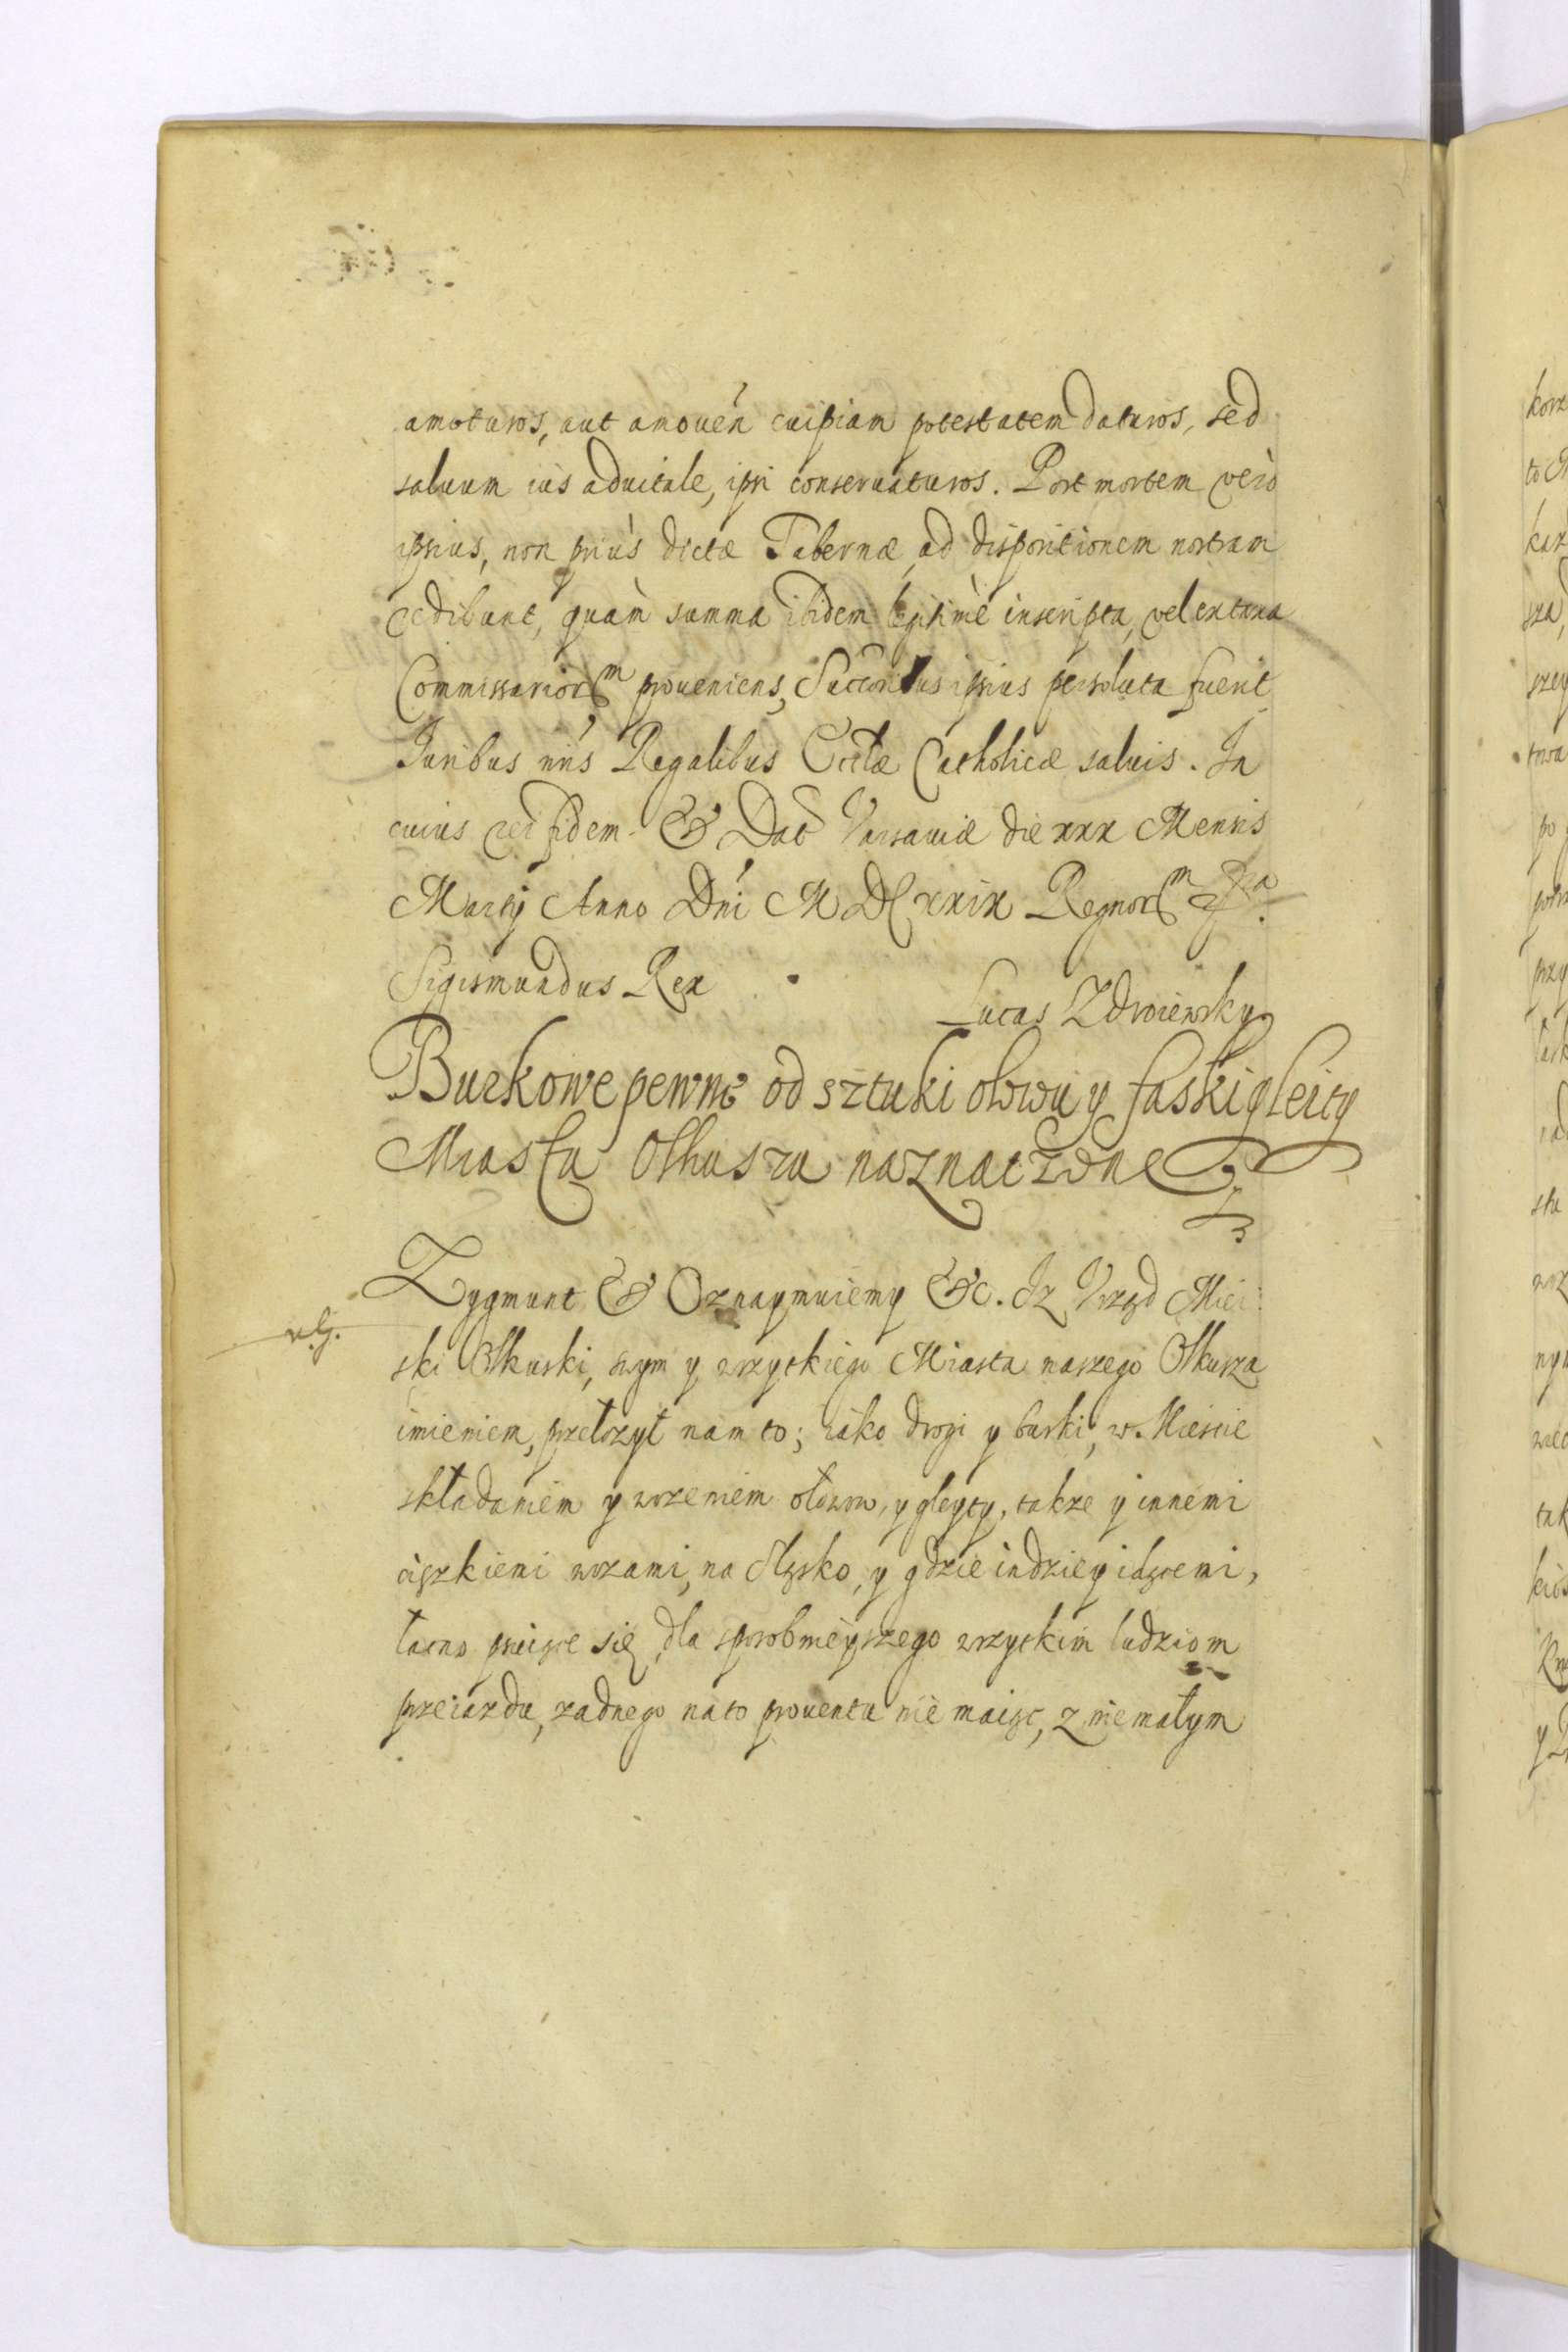 amoturos, aut amouen̄ cuipiam potestatem daturos, sed
saluum ius aduitale, ipsi conseruaturos. Post mortem verò
ipsius, non priùs dictæ Tabernæ, ad dispositionem nostram
cedibunt, quàm summa ibidem legitimè inscripta, vel ex taxa
Commissariorm proueniens, Succoribus ipsius persoluta fuerit
Juribus nr̄is Regalibus Eccłæ Catholicæ saluis. In
cuius rei fidem & Dat Varsauiæ die xxx Mensis
Martij Anno Dn̄i M DC xxix Regnorm
Sigismundus Rex
Lucas Zdroiewsky
Burkowe pewne od sztuki ołowu y faski gleity
Miastu Olkuszu naznaczone
Zygmunt & Oznaymuiemy &c. Iz Vrząd Miei
ski Olkuski, swym y wszytkiego Miasta naszego Olkusza
imieniem, przełozył nam to; iáko drogi y burki, w Mieście
składaniem y wozeniem ołowu, y gleyty, takze y innemi
ciąszkiemi wozami, na Sląsko, y gdzie indziey idącemi,
łacno psuiące się, dla sposobnieyszego wszytkim ludziom
przeiazdu, zadnego na to prouentu nie maiąc, z niemałym